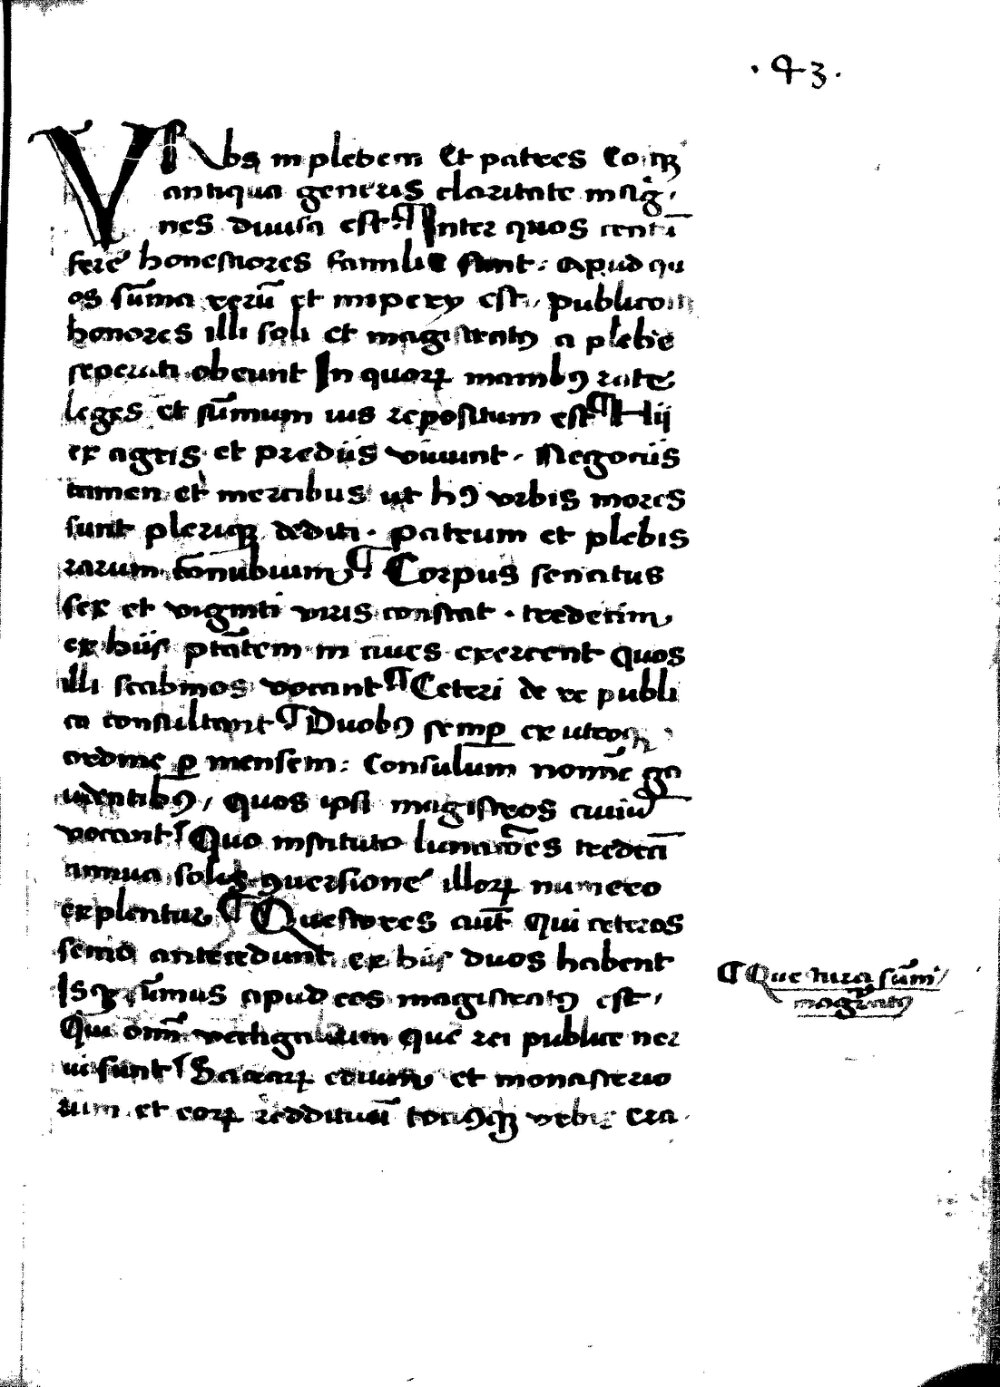 ·43·
VRbs in plebem Et patres Eoꝙ
antiqua generis claritate mag̅,
nes diuisa est ¶ Inter quos centū
fere honestiores familie sunt: apud qu
os sūma rerū et impery est, publicos
honores illi soli et magistratꝰ a plebe
seperati obeunt In quoꝝ manibꝰ rate
leges et sūmum ius repositum est ¶ Hij
ex agris et predijs viuunt. Negocijs
tamen et mercibus ut hꝰ vrbis mores
sunt pleriqꝫ dediti. patrum et plebis
rarum cōnubium ¶ Corpus senatus
sex et viginti viris constat. tredecim
ex hijs ptātem in ciues exercent quos
illi scabinos vocant ¶ Ceteri de re publi
ca consultant ¶ Duobꝰ semꝑ ex utroqꝫ
ordine ꝑ mensem: Consulum nomīe ga
udentibꝰ, quos ipsi magistros ciuiū
vocant ¶ Quo instituto lunacōes tredeci
annua solis ꝯuersione illoꝝ numero
explentur ¶ Questores aūt Qui ceteros
senio antecedunt ex hijs duos habent
Isqꝫ sūmus apud eos magistratꝰ est,
Qui omī vectigalium que rei publice ner
ui sunt ¶ Sacraꝝ edium et monasterio
rum et eoꝝ reddituū tociusqꝫ vrbis era
¶ Que iura sūmi
magr̄atꝰ